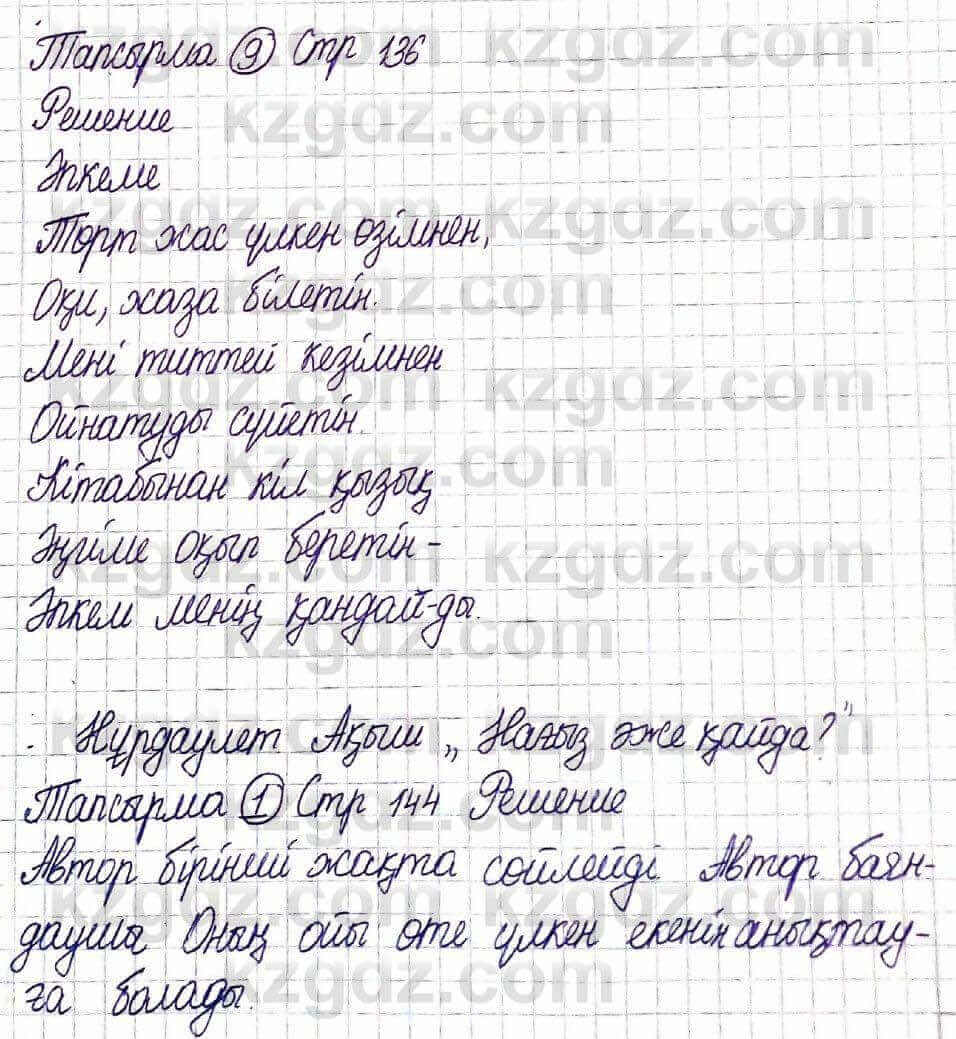 Тапсырма 9 Стр 136
Решение
Әпкеме
Төрт жас үлкен өзімнен,
Оқи, жаза білетін.
Мені титтей кезімнен
Ойнатуды сүйетін.
Кітабынан кіл қызық
Әңгіме оқып беретін -
Әпкем менің қандай-ды.
Нұрдаулет Ақыш „Нағыз әже қайда?"
Тапсырма 1 Стр 144 Решение
Автор бірінші жақта сөйлейді Автор баян-
даушы Оның ойы өте үлкен екенін анықтау-
ға болады.
kzgdz.com